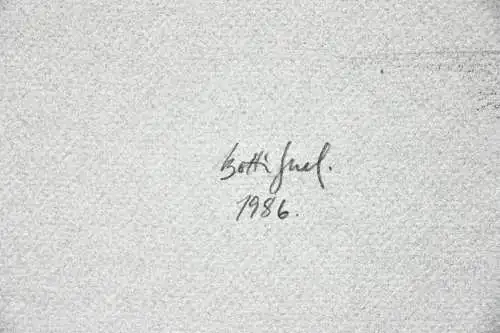 Botti Guel.
1986.